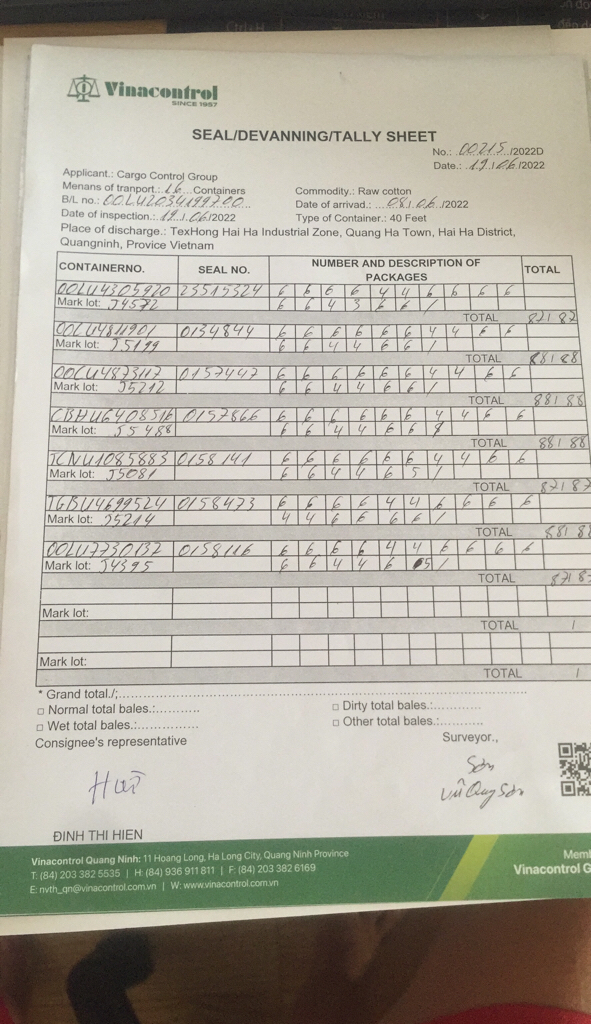 Ctrl+H
Vinacontrol
SINCE 1957
SEAL/DEVANNING/TALLY SHEET
No.: 00215 /2022D
Date.: 19/06/2022
Applicant.: Cargo Control Group
Menans of tranport.: 16 Containers
Commodity.: Raw cotton
B/L no.: OOLU2034199700
Date of arrivad.: 08/06/2022
Date of inspection.: 19/06/2022
Type of Container.: 40 Feet
Place of discharge.: TexHong Hai Ha Industrial Zone, Quang Ha Town, Hai Ha District,
Quangninh, Provice Vietnam
CONTAINERNO. SEAL NO. NUMBER AND DESCRIPTION OF PACKAGES TOTAL
OOLU4305920 23515324 6 6 6 6 4 4 6 6 6 6
Mark lot: J4572 6 6 4 3 6 6 /
TOTAL 82/82
OOLU4811901 0134844 6 6 6 6 6 6 4 4 6 6
Mark lot: J5199 6 6 4 4 6 6 /
TOTAL 88/88
OOCU4873117 0157447 6 6 6 6 6 6 4 4 6 6
Mark lot: J5212 6 6 4 4 6 6 /
TOTAL 88/88
CBHU6408516 0157866 6 6 6 6 6 6 4 4 6 6
Mark lot: J5488 6 6 4 4 6 6
TOTAL 88/88
TCNU1085883 0158141 6 6 6 6 6 6 4 4 6 6
Mark lot: J5081 6 6 4 4 6 5 /
TOTAL 87/87
TGBU4699524 0158473 6 6 6 6 4 4 6 6 6 6
Mark lot: J5214 4 4 6 6 6 6 /
TOTAL 88/88
OOLU7730132 0158116 6 6 6 6 4 4 6 6 6 6
Mark lot: J4395 6 6 4 4 6 5 /
TOTAL 87/87
Mark lot:
TOTAL /
Mark lot:
TOTAL /
* Grand total./;
□ Normal total bales.:
□ Dirty total bales.:
□ Wet total bales.:
□ Other total bales.:
Consignee's representative
Surveyor.,
Sơn
Vũ Quang Sơn
ĐINH THI HIEN
Vinacontrol Quang Ninh: 11 Hoang Long, Ha Long City, Quang Ninh Province
T: (84) 203 382 5535 | H: (84) 936 911 811 | F: (84) 203 382 6169
E: nvth_qn@vinacontrol.com.vn | W: www.vinacontrol.com.vn
Memb
Vinacontrol G